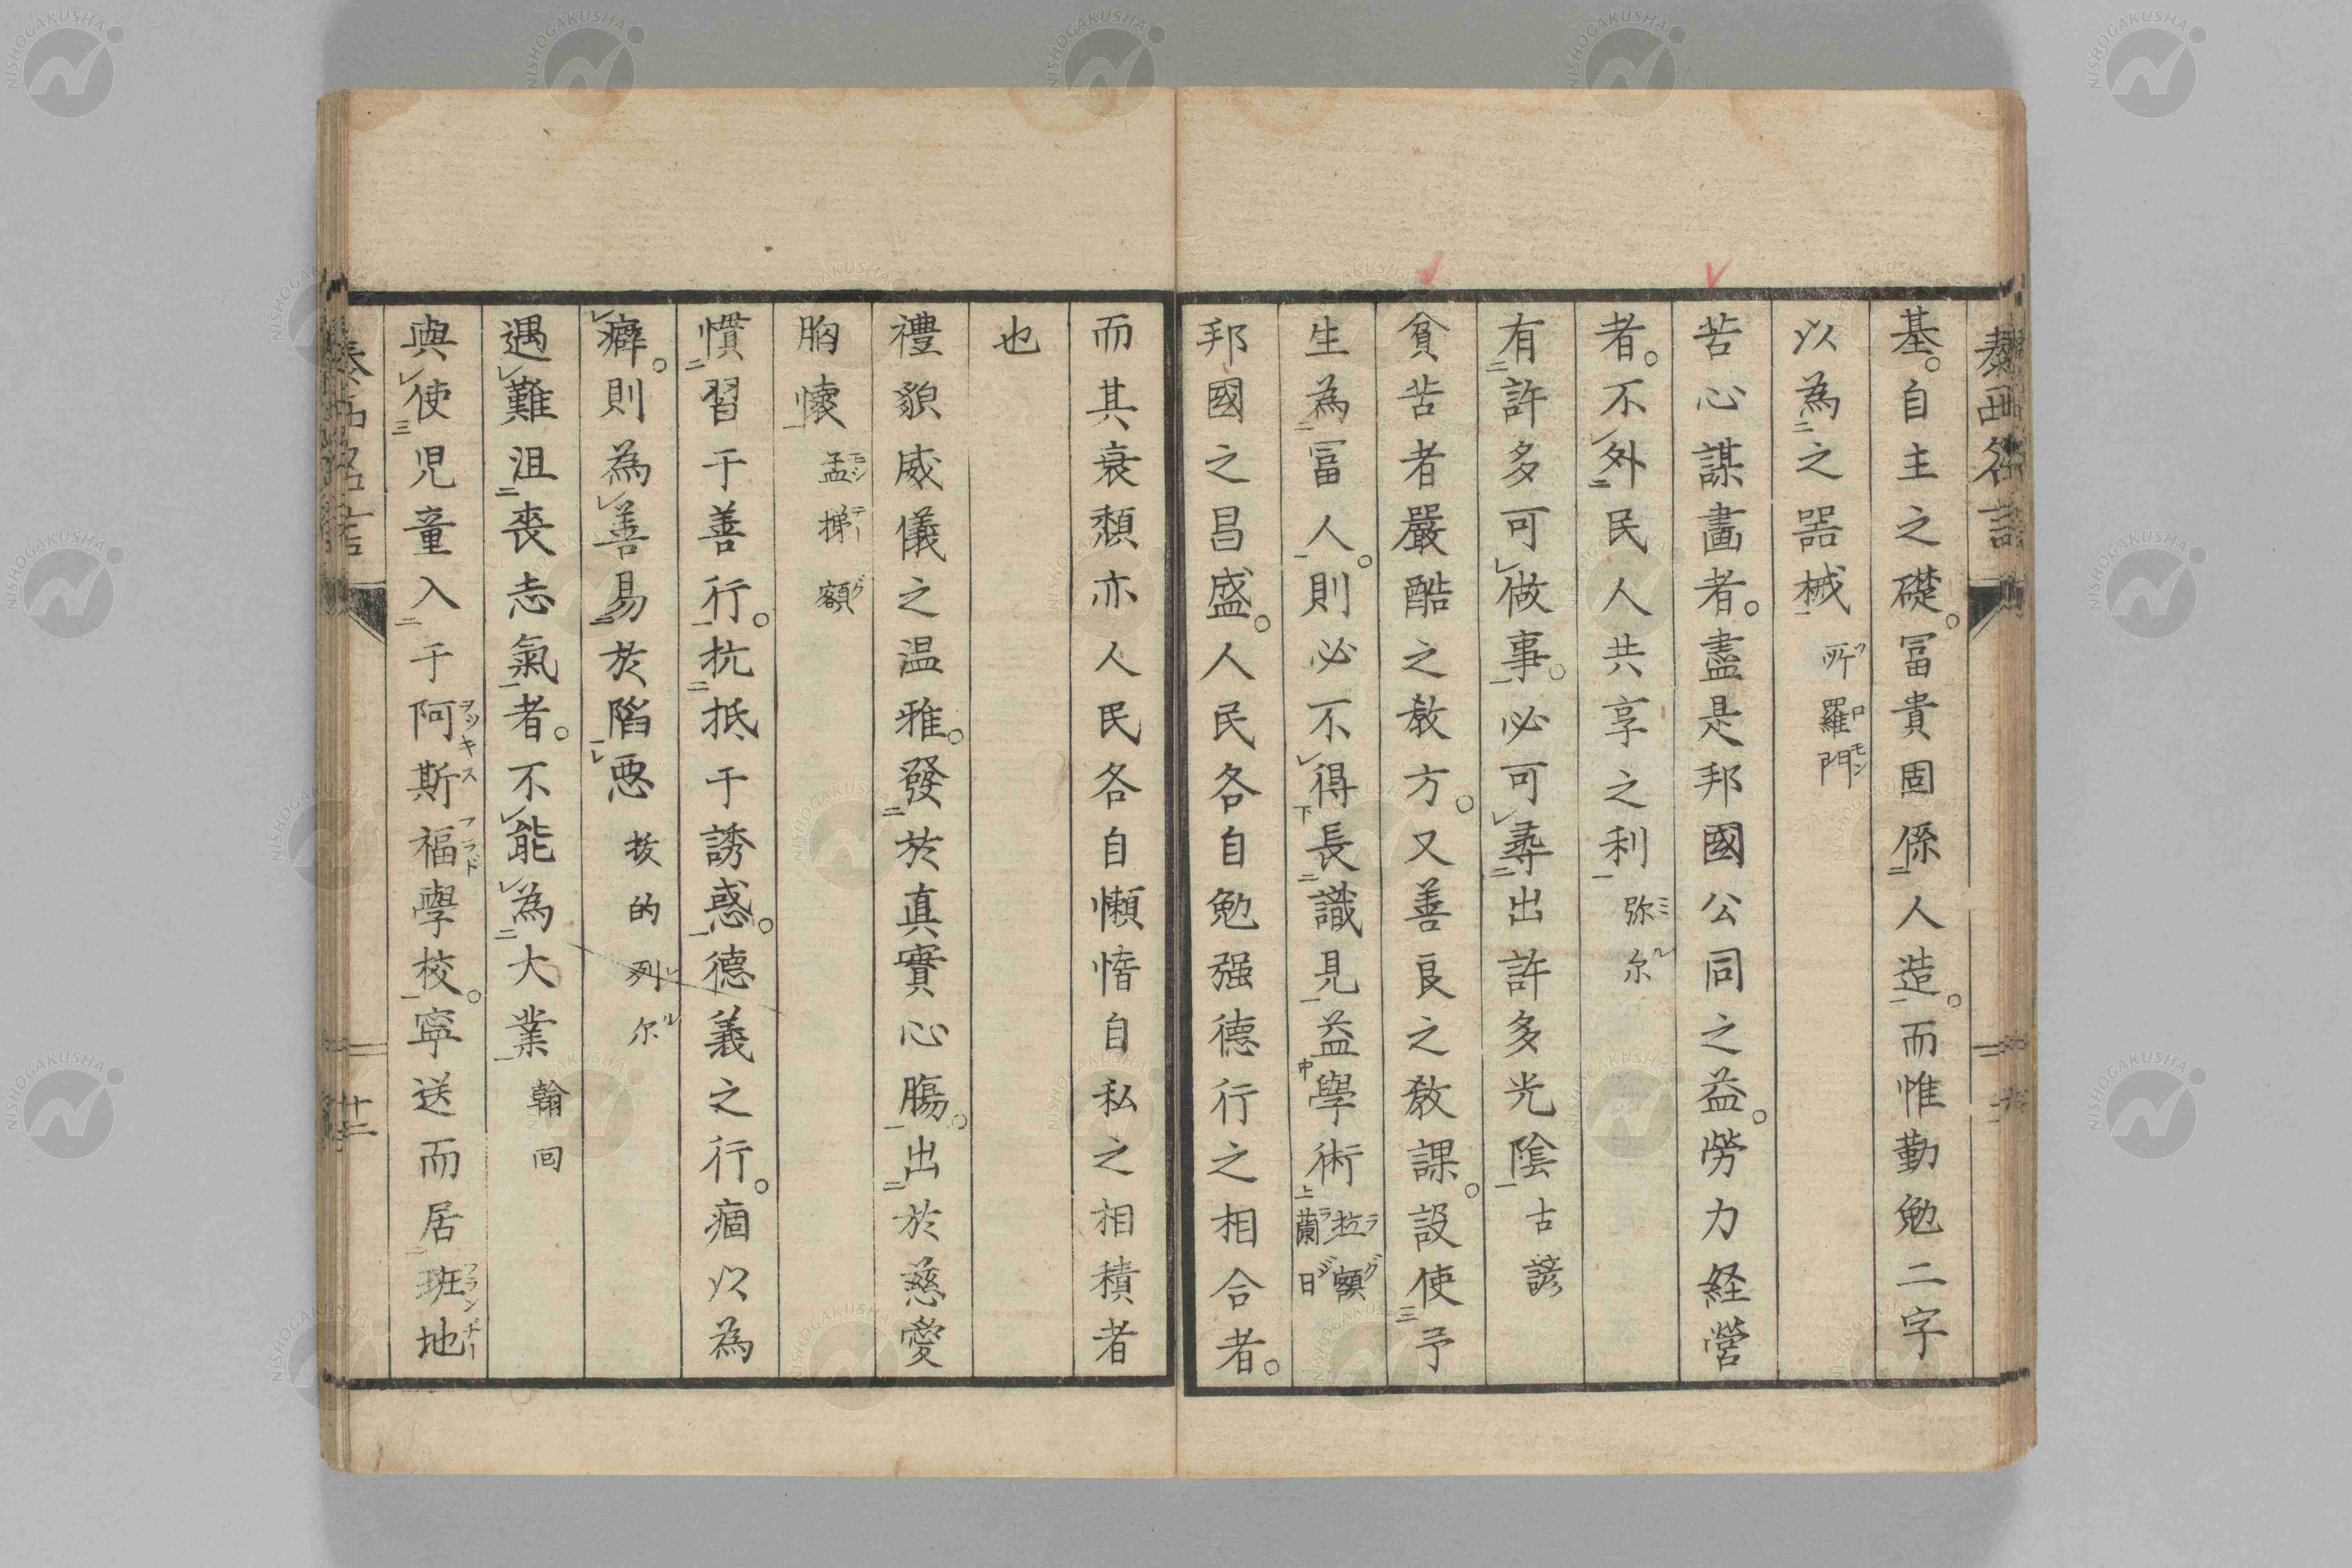 泰西名語
基。自主之礎。冨貴固係人造。而惟勤勉二字
以為之器械 所羅門
苦心謀畫者。盡是邦國公同之益。勞力経營
者。不外民人共享之利 弥尓
有許多可做事。必可尋出許多光陰 古諺
貧苦者嚴酷之教方。又善良之教課。設使予
生為冨人。則必不得長識見益學術 拉額蘭日
邦國之昌盛。人民各自勉强德行之相合者。
而其衰頽亦人民各自懶惰自私之相積者
也
禮貌威儀之温雅。發於真實心膓。出於慈愛
胸懐 孟梯額
慣習于善行。抗抵于誘惑。德義之行。痼以為
癖。則為善易於陷悪 抜的列尓
遇難沮喪志氣者。不能為大業 翰回
與使児童入于阿斯福學校。寧送而居班地
廿二
NISHOGAKUSHA